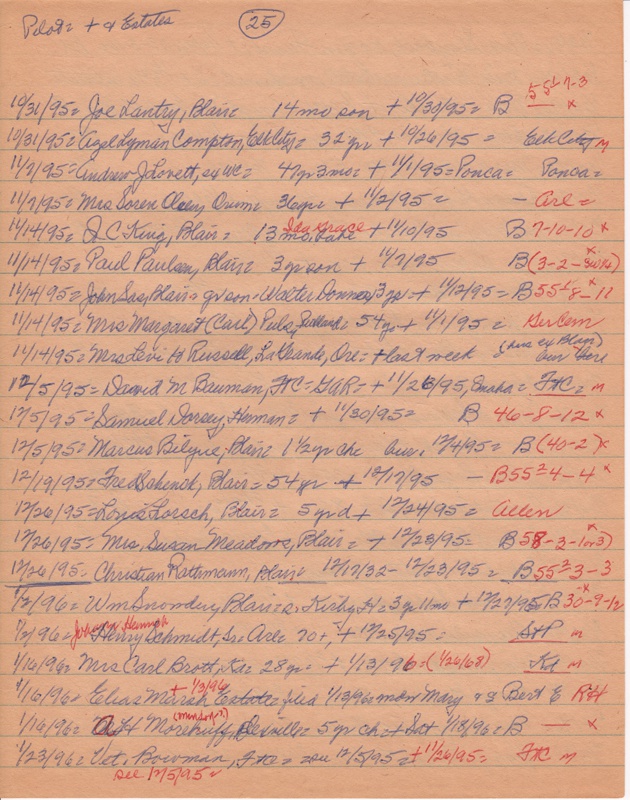 Pilot = + & Estates 25
10/31/95 = Joe Lantry, Blair = 14 mo son + 10/30/95 = B 55 1-7-3 x
10/31/95 = Azel Lyman Compton, Elk City = 32 yr + 10/26/95 = Elk City m
11/7/95 = Andrew J Lovett, = 47 yr 3 mo = + 11/1/95 = Ponca = Ponca =
11/7/95 = Mrs Soren Olsen, Orum = 36 yr = + 11/2/95 = - Arl =
11/14/95 = J. C. King, Blair = 13 mo Ida Grace + 11/10/95 B 7-10-10 x
11/14/95 = Paul Paulsen, Blair = 3 yr son + 11/7/95 B (3-2- x
11/14/95 = John Sas, Blair = gr son = Walter 3 yr = + 11/12/95 = B 55 1-8-11
11/14/95 = Mrs Margaret (Carl) Puls, = 54 yr + 11/1/95 = Ger Cem
11/14/95 = Mrs Levi H Russell, LaGrande, Ore = + last week = (was ex Blair) bur here
12/5/95 = David M Bauman, FtC = GAR = + 11/26/95, Omaha = FtC = m
12/5/95 = Samuel Dorsey, Herman = + 11/30/95 = B 46-8-12 x
12/5/95 = Marcus Bilyue, Blair = 1 1/2 yr ch bur. 12/4/95 = B (40-2) x
12/19/95 = Fred Sahenck, Blair = 54 yr + 12/17/95 - B 55 2 4-4 x
12/26/95 = Louis Lorsch, Blair = 5 yr d + 12/24/95 = Allen
12/26/95 = Mrs. Susan Meadows, Blair = + 12/23/95 = B 58-3-1 or 3) x
12/26/95 - Christian Rathmann, Blair = 12/17/32 - 12/23/95 = B 55 2 3-3
1/2/96 = Wm Snowden, Blair = Kirby H = 3 yr 11 mo + 12/27/95 = B 30-9-12 x
Johann Heinrich
1/2/96 = Henry Schmidt, Sr = Arl = 70 +, + 12/25/95 = StP m
1/16/96 = Mrs Carl Brott, Ka = 28 yr = + 1/13/96 = (1/26/68) Kd m
+ 1/3/96
1/16/96 = Elias Estate = filed 1/13/96 = Mary & Bert E RH
1/16/96 = Morehuff, = 5 yr ch = + Sat 1/18/96 = B - x
1/23/96 = Vet. Bowman, FtC = see 12/5/95 = + 11/26/95 = FtC m
see 12/5/95 =